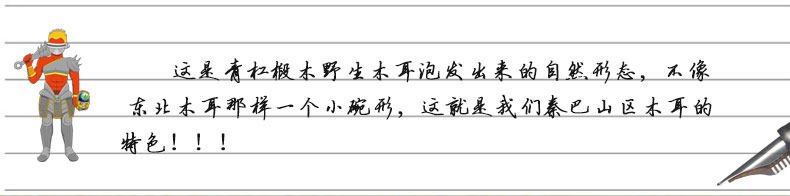 这是青杠椴木野生木耳泡发出来的自然形态，不像
东北木耳那样一个小碗形，这就是我们秦巴山区木耳的
特色！！！